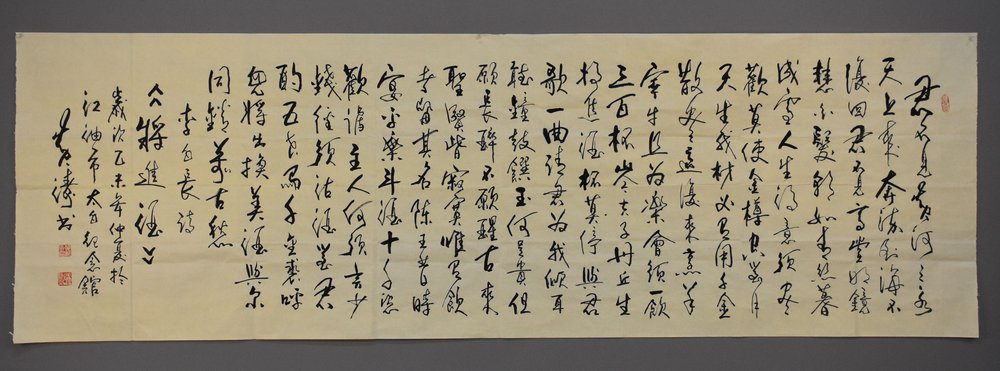 君不見黃河之水
天上來奔流到海不
復回君不見高堂明鏡
悲白髮朝如青絲暮
成雪人生得意須盡
歡莫使金樽空對月
天生我材必有用千金
散盡還復來烹羊
宰牛且為樂會須一飲
三百杯岑夫子丹丘生
將進酒杯莫停與君
歌一曲請君為我傾耳
聽鐘鼓饌玉何足貴但
願長醉不願醒古來
聖賢皆寂寞惟有飲
者留其名陳王昔時
宴平樂斗酒十千恣
歡謔主人何須言少
錢徑須沽酒對君
酌五花馬千金裘呼
兒將出換美酒與爾
同銷萬古愁
李白長詩
《將進酒》
歲次乙未年仲夏於
江油市太白紀念館
書